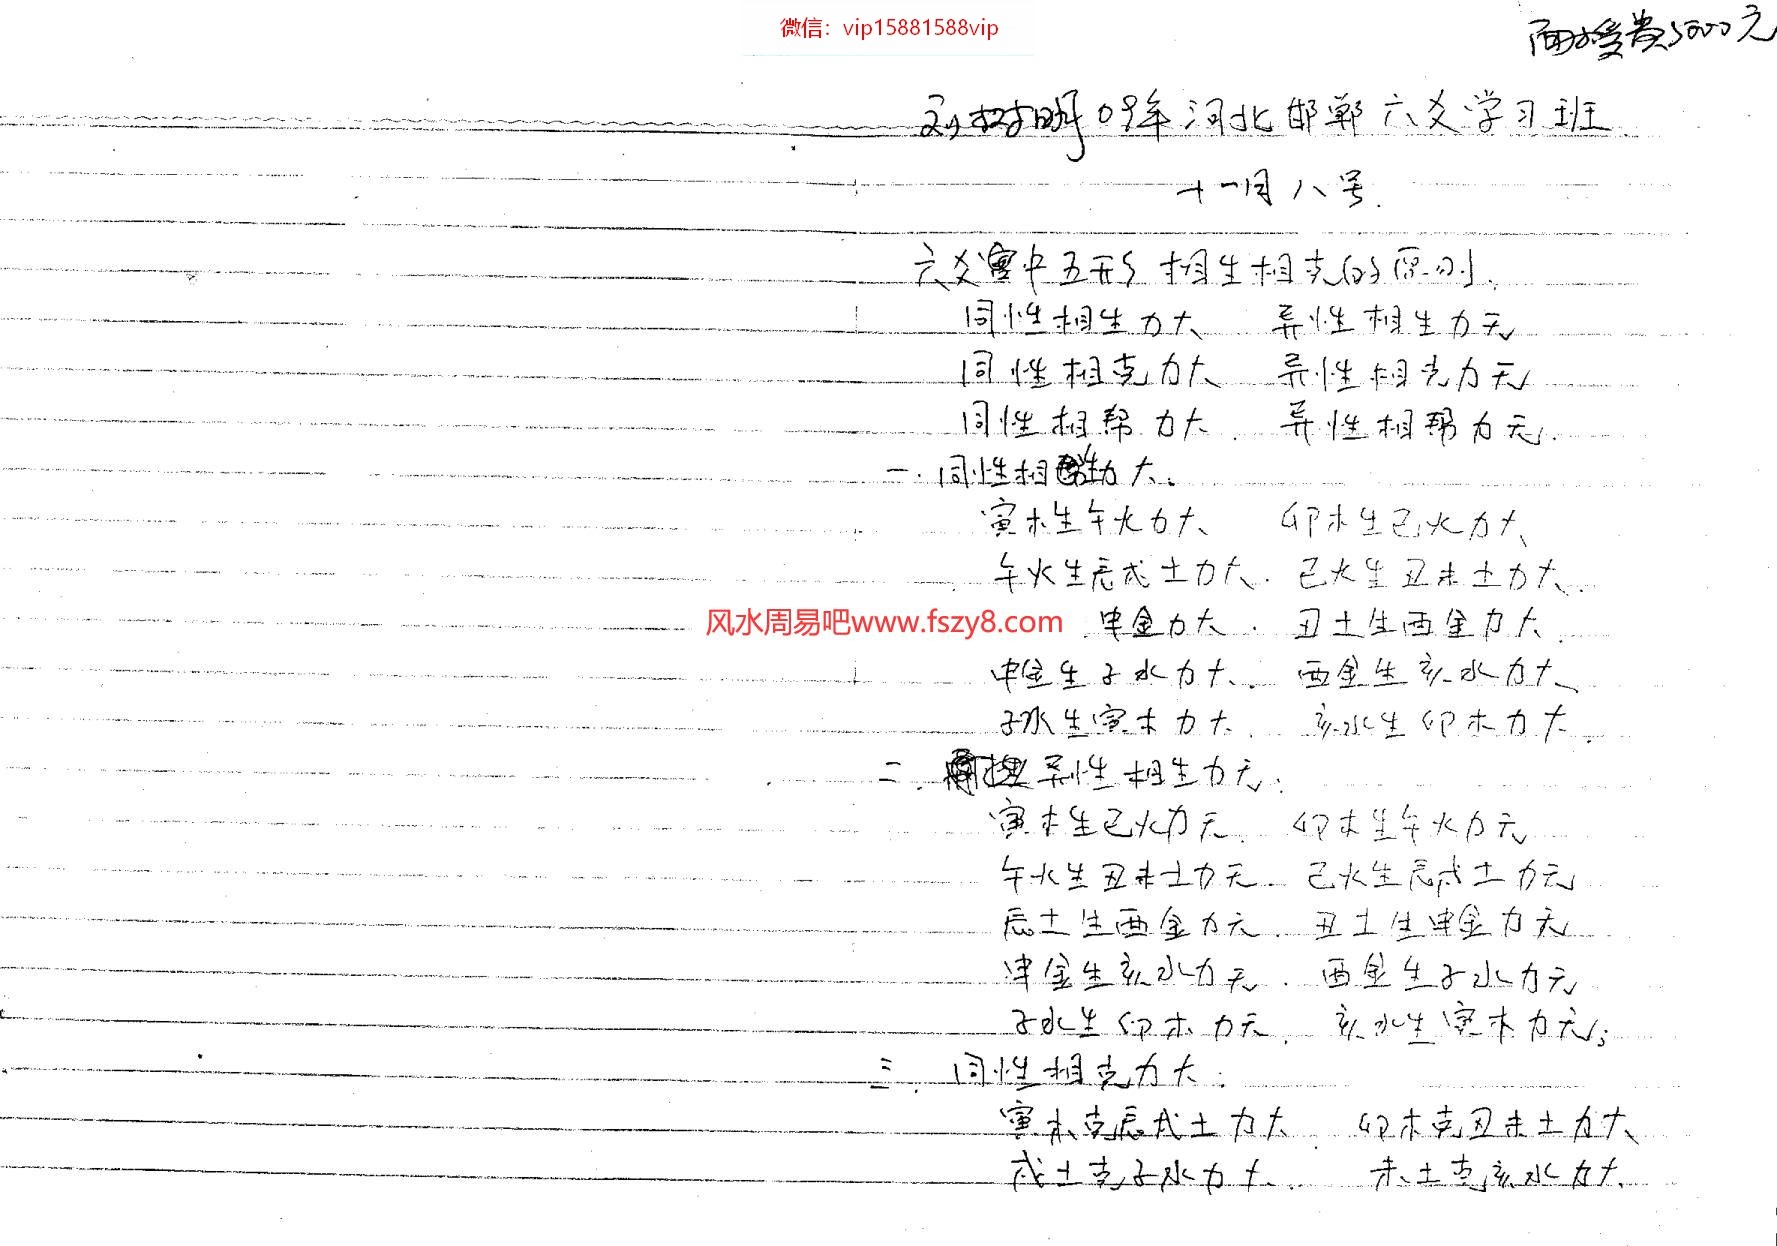 微信：vip15881588vip
面授费5000元
刘树明09年河北邯郸六爻学习班
十一月八号.
六爻寅中五行相生相克的原则.
同性相生力大 异性相生力无
同性相克力大 异性相克力无
同性相帮力大. 异性相帮力无.
一. 同性相生力大.
寅木生午火力大、 卯木生巳火力大、
午火生辰戌土力大. 巳火生丑未土力大.
风水周易吧www.fszy8.com 申金力大. 丑土生酉金力大.
申金生子水力大、 酉金生亥水力大、
子水生寅木力大. 亥水生卯木力大.
二. 异性相生力无.
寅木生巳火力无. 卯木生午火力无
午火生丑未土力无. 巳火生辰戌土力无
辰土生酉金力无. 丑土生申金力无
申金生亥水力无. 酉金生子水力无
子水生卯木力无. 亥水生寅木力无;
三. 同性相克力大.
寅木克辰戌土力大 卯木克丑未土力大、
戌土克子水力大. 未土克亥水力大.